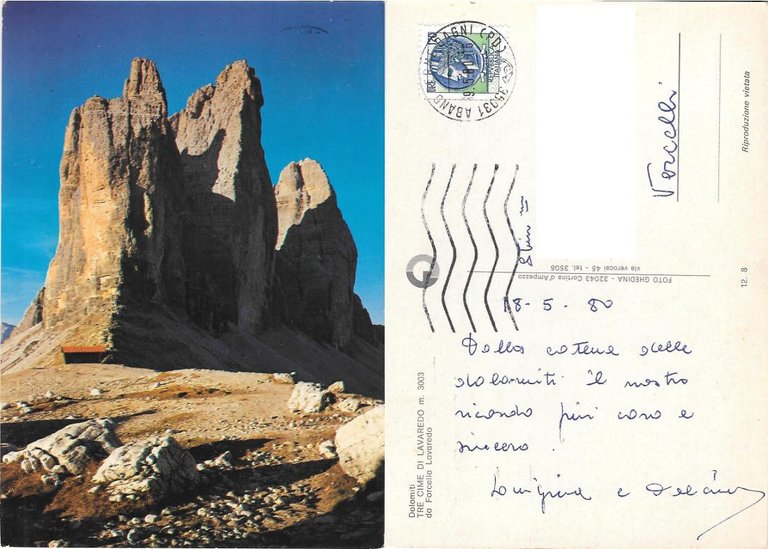 35031 ABANO BAGNI (PD)
Vercelli
Riproduzione vietata
12. 8
FOTO GHEDINA - 32043 Cortina d'Ampezzo
via verocai 45 - tel. 2505
18-5-80
Dalla catena delle
dolomiti il nostro
ricordo più caro e
sincero.
Luigina e
Dolomiti
TRE CIME DI LAVAREDO m. 3003
da Forcella Lavaredo